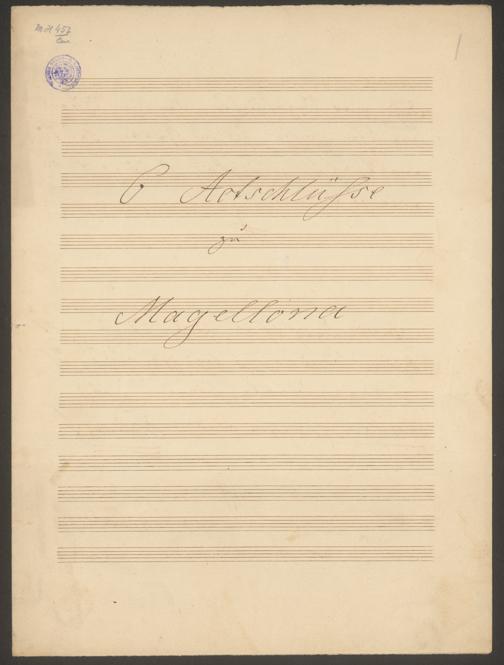 457
1
6 Actschlüsse
zu
Magellona